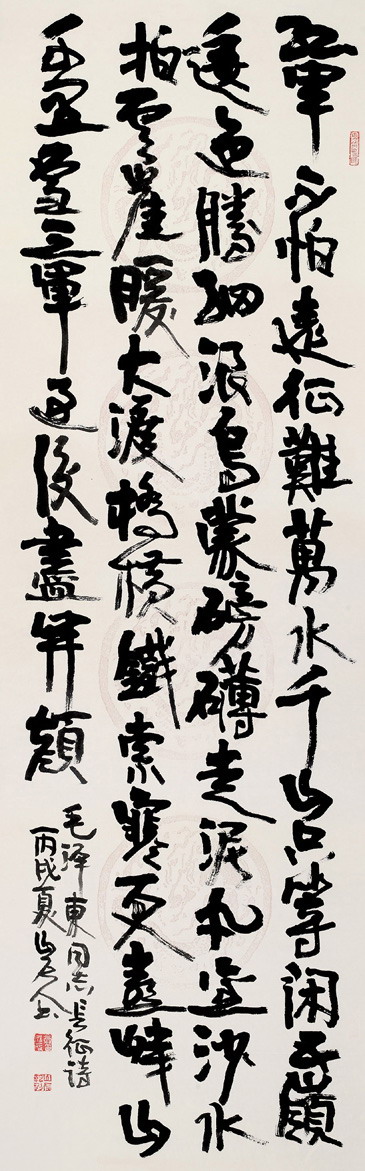 紅軍不怕遠征難萬水千山只等闲五嶺
逶迤騰細浪烏蒙磅礴走泥丸金沙水
拍雲崖暖大渡橋橫鐵索寒更喜岷山
千里雪三軍過後盡开顏
毛泽東同志長征詩
丙戌夏山